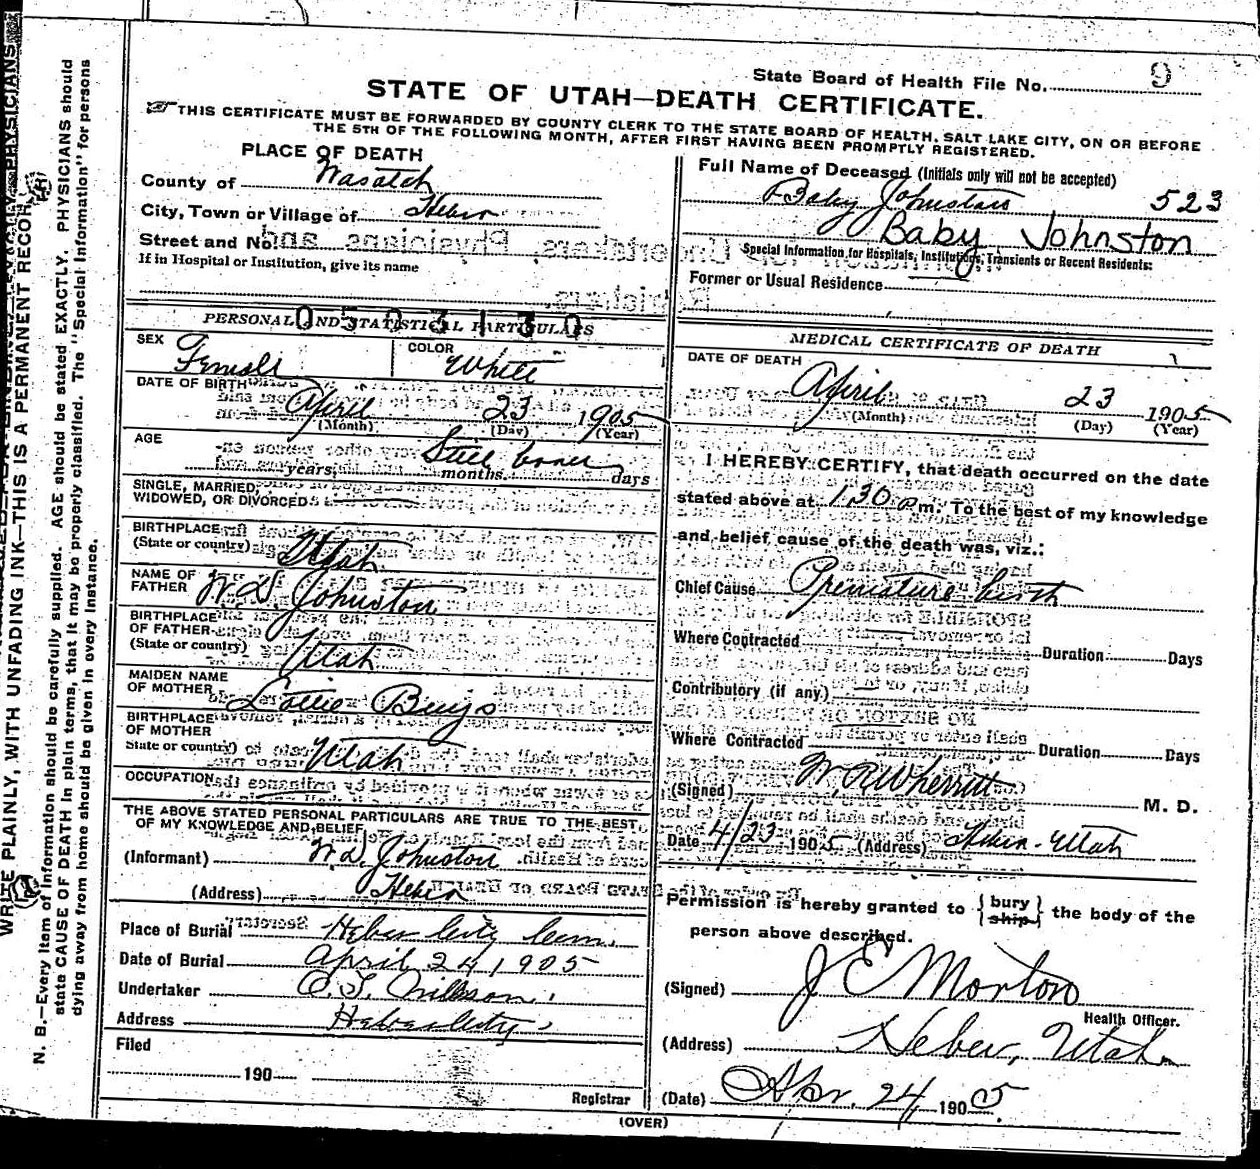 State Board of Health File No. 9
STATE OF UTAH—DEATH CERTIFICATE.
THIS CERTIFICATE MUST BE FORWARDED BY COUNTY CLERK TO THE STATE BOARD OF HEALTH, SALT LAKE CITY, ON OR BEFORE
THE 5TH OF THE FOLLOWING MONTH, AFTER FIRST HAVING BEEN PROMPTLY REGISTERED.
PLACE OF DEATH
County of Wasatch
City, Town or Village of Heber
Street and No.
If in Hospital or Institution, give its name
Full Name of Deceased (Initials only will not be accepted)
Baby Johnston 523
Baby Johnston
Special Information for Hospitals, Institutions, Transients or Recent Residents:
Former or Usual Residence
PERSONAL AND STATISTICAL PARTICULARS
0503130
SEX Female COLOR White
DATE OF BIRTH April 23 1905
(Month) (Day) (Year)
AGE Still born
years, months, days
SINGLE, MARRIED,
WIDOWED, OR DIVORCED
BIRTHPLACE
(State or country) Utah
NAME OF
FATHER W. D. Johnston
BIRTHPLACE
OF FATHER
(State or country) Utah
MAIDEN NAME
OF MOTHER Lottie Buys
BIRTHPLACE
OF MOTHER
State or country) Utah
OCCUPATION
THE ABOVE STATED PERSONAL PARTICULARS ARE TRUE TO THE BEST
OF MY KNOWLEDGE AND BELIEF
(Informant) W. D. Johnston
(Address) Heber
Place of Burial Heber City Cem.
Date of Burial April 24, 1905
Undertaker
Address Heber City
Filed
190
Registrar
MEDICAL CERTIFICATE OF DEATH
DATE OF DEATH
April 23 1905
(Month) (Day) (Year)
I HEREBY CERTIFY, that death occurred on the date
stated above at 1.30 p m. To the best of my knowledge
and belief cause of the death was, viz.:
Chief Cause Premature birth
Where Contracted Duration Days
Contributory (if any)
Where Contracted Duration Days
(Signed) W. R. Wherritt M. D.
Date 4/23 1905 (Address) Heber - Utah
Permission is hereby granted to { bury ship } the body of the
person above described.
(Signed) J E Morton
Health Officer.
(Address) Heber, Utah
(Date) Apr. 24, 1905
(OVER)
WRITE PLAINLY, WITH UNFADING INK—THIS IS A PERMANENT RECORD
N. B.—Every item of information should be carefully supplied. AGE should be stated EXACTLY. PHYSICIANS should
state CAUSE OF DEATH in plain terms, that it may be properly classified. The "Special Information" for persons
dying away from home should be given in every instance.